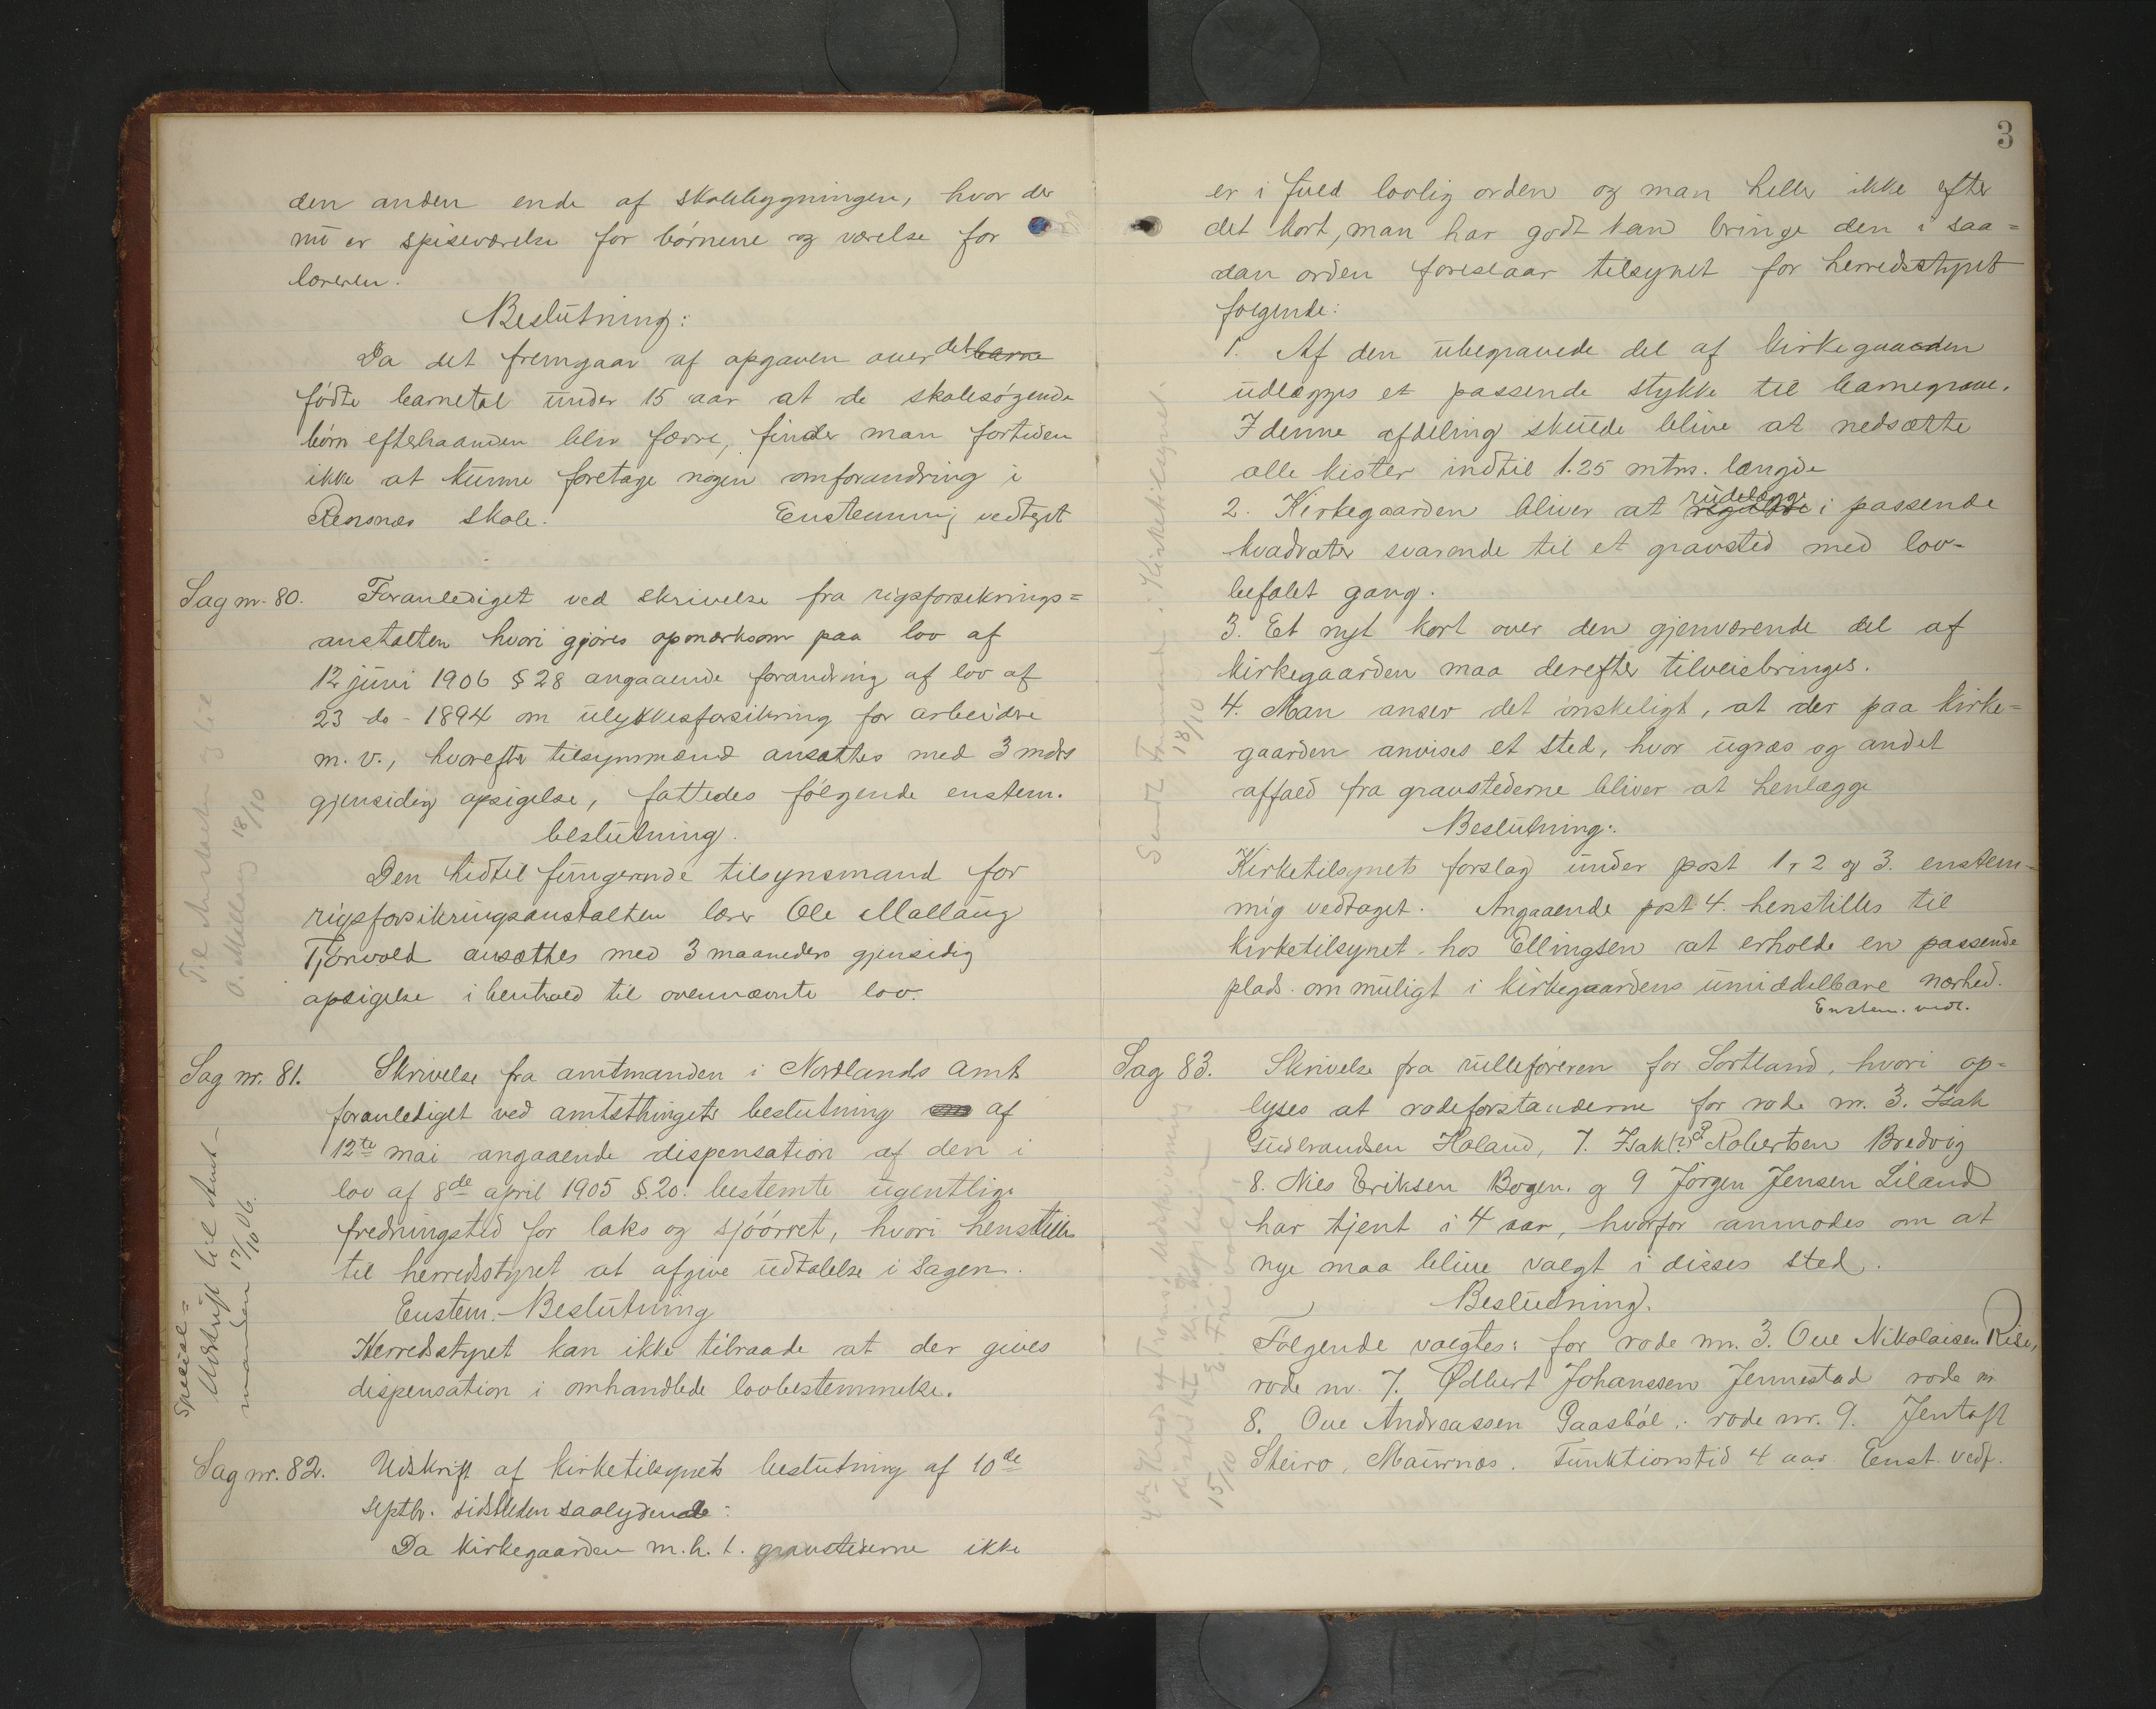 den anden ende af skolebygningen, hvor der
nu er spiseværelse for børnene og værelse for
læreren.
Beslutning:
Da det fremgaar af opgaven over det barne
fødte barnetal under 15 aar at de skolesøgende
børn efterhaanden blir færre, finder man fortiden
ikke at kunne foretage nogen omforandring i
Rensnæs skole. Enstemmig vedtaget
Sag nr. 80. Foranlediget ved skrivelse fra rigsforsikrings=
anstalten hvori gjøres opmærksom paa lov af
12 juni 1906 § 28 angaaende forandring af lov af
23 do - 1894 om ulykkesforsikring for arbeidere
m. v., hvorefter tilsynsmænd ansættes med 3 mdrs
gjensidig opsigelse, fattedes følgende enstem.
beslutning.
Den hidtil fungerende tilsynsmand for
rigsforsikringsanstalten lærer Ole Mallaug
Tjørvold ansættes med 3 maaneders gjensidig
opsigelse i henhold til ovennævnte lov.
Til Anstalten og til
O. Mallaug 18/10
Sag nr. 81. Skrivelse fra amtmanden i Nordlands amt
foranlediget ved amtsthingets beslutning af
12te mai angaaende dispensation af den i
lov af 8de april 1905 § 20. bestemte ugentlige
fredningstid for laks og sjøørret, hvori henstilles
til herredsstyret at afgive udtalelse i sagen.
Enstem. Beslutning
Herredsstyret kan ikke tilraade at der gives
dispensation i omhandlede lovbestemmelse.
Special=
Udskrift til Amt-
manden 17/10 06.
Sag nr. 82. Udskrift af kirketilsynets beslutning af 10de
septbr. sidstleden saalydende:
Da kirkegaarden m. h. t. gravstederne ikke
3
er i fuld lovlig orden og man heller ikke efter
det kort, man har godt kan bringe den i saa=
dan orden foreslaar tilsynet for herredsstyret
følgende:
1. Af den ubegravede del af kirkegaarden
udlægges et passende stykke til barnegrave.
I denne afdeling skulde blive at nedsætte
alle kister indtil 1.25 mtm. længde
2. Kirkegaarden bliver at rudelægge i passende
kvadrater svarende til et gravsted med lov-
befalet gang.
3. Et nyt kort over den gjenværende del af
kirkegaarden maa derefter tilveiebringes.
4. Man anser det ønskeligt, at der paa kirke=
gaarden anvises et sted, hvor ugræs og andet
affald fra gravstederne bliver at henlægge
Beslutning:
Kirketilsynets forslag under post 1, 2 og 3. enstem-
mig vedtaget. Angaaende post 4. henstilles til
kirketilsynet hos Ellingsen at erholde en passende
plads om muligt i kirkegaardens umiddelbare nærhed.
Enstem. vedt.
Sendt Formand i Kirketilsynet.
18/10
Sag 83. Skrivelse fra rulleføreren for Sortland, hvori op=
lyses at rodeforstanderne for rode nr. 3. Isak
Gudbrandsen Holand, 7. Isak (?) Robertsen Bredvig
8. Nils Eriksen Bogen. og 9 Jørgen Jensen Liland
har tjent i 4 aar, hvorfor anmodes om at
nye maa blive valgt i disses sted.
Beslutning.
Følgende valgtes: for rode nr. 3. Ove Nikolaisen Rise,
rode nr. 7. Ødbert Johanssen Jennestad rode nr
8. Ove Andreassen Gaasbøl. rode nr. 9. Jentoft
Steiro, Maurnæs. Funktionstid 4 aar. Enst. vedt.
15/10